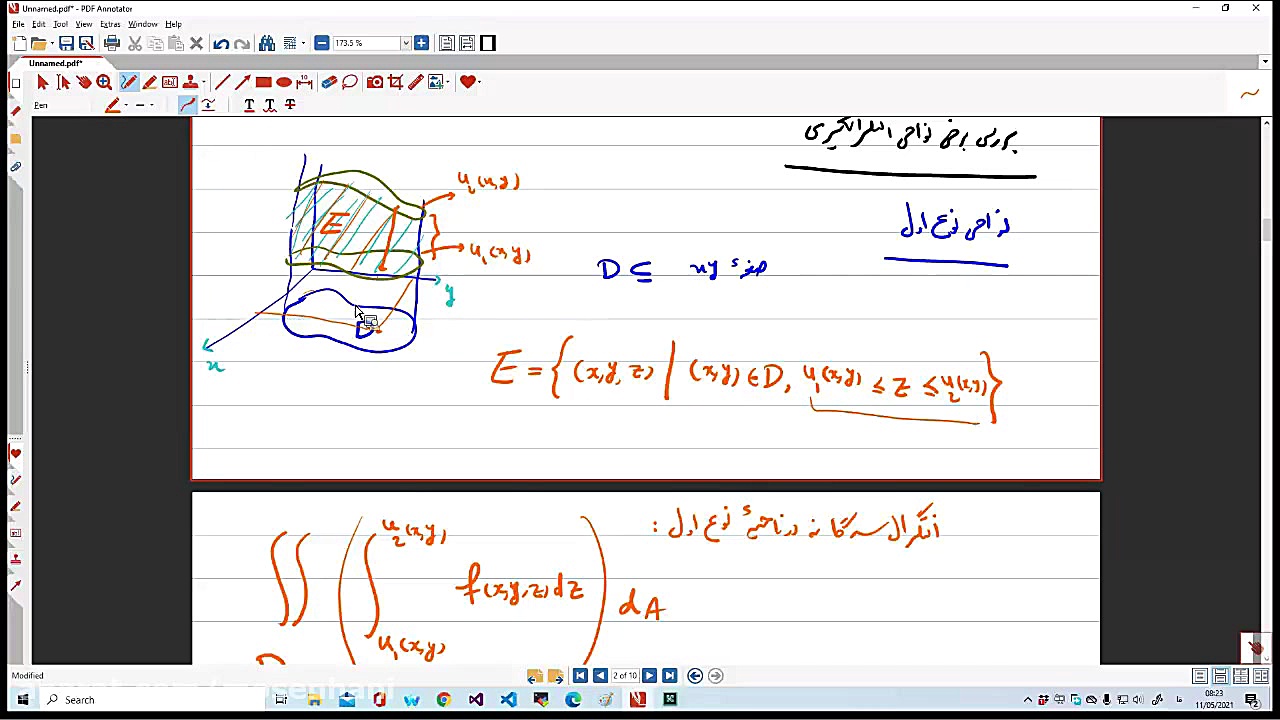 Unnamed.pdf* - PDF Annotator
File Edit Tool View Extras Window Help
173.5 %
Unnamed.pdf*
Pen
بررسی برخی نواحی انتگرالگیری
نواحی نوع اول
u₂(x,y)
E
u₁(x,y)
D ⊆ صفحهٔ xy
y
D
x
E = { (x,y,z) | (x,y) ∈ D, u₁(x,y) ≤ z ≤ u₂(x,y) }
انتگرال سه گانه در ناحیهٔ نوع اول :
∬ ( ∫ u₂(x,y) f(x,y,z) dz ) dA
u₁(x,y)
D
Modified
2 of 10
Search
08:23
11/05/2021